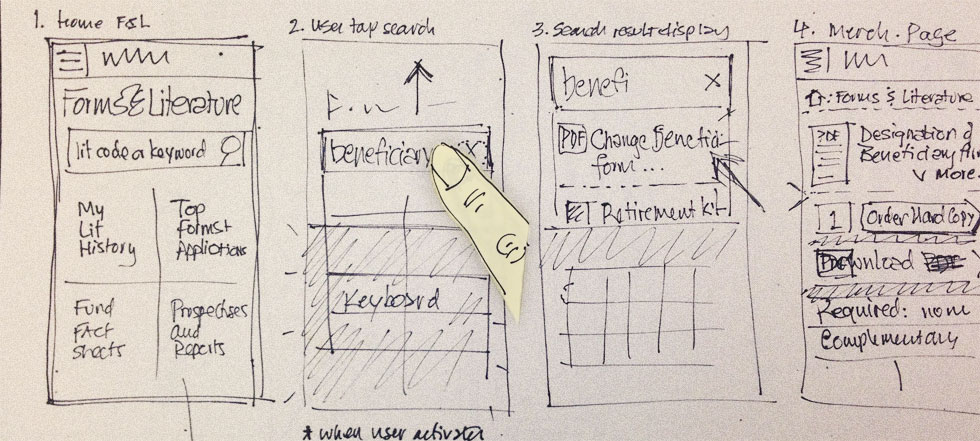 1. Home F&L
Forms & Literature
lit code or keyword
My
Lit
History
Top
Forms &
Applications
Fund
Fact
Sheets
Prospectuses
and
Reports
2. User tap search
beneficiar
X
Keyboard
* when user activates
3. Search result display
benefi
X
PDF
Change Benefici
form...
Retirement Kit
4. Merch. Page
: Forms & Literature
PDF
Designation of
Beneficiary
v more
1
Order Hard Copy
Download PDF
Required: none
Complementary